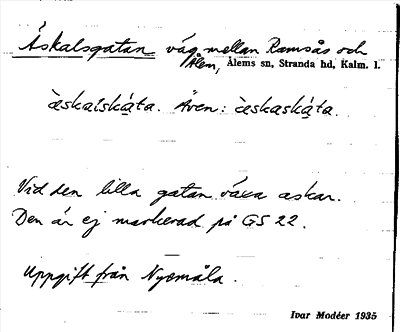 Äskalsgatan väg mellan Ramsås och
Ålem, Ålems sn, Stranda hd, Kalm. l.
àskalskáta. Även: àskaskáta.
Vid den lilla gatan växa askar.
Den är ej markerad på GS 22.
Uppgift från Nyemåla.
Ivar Modéer 1935